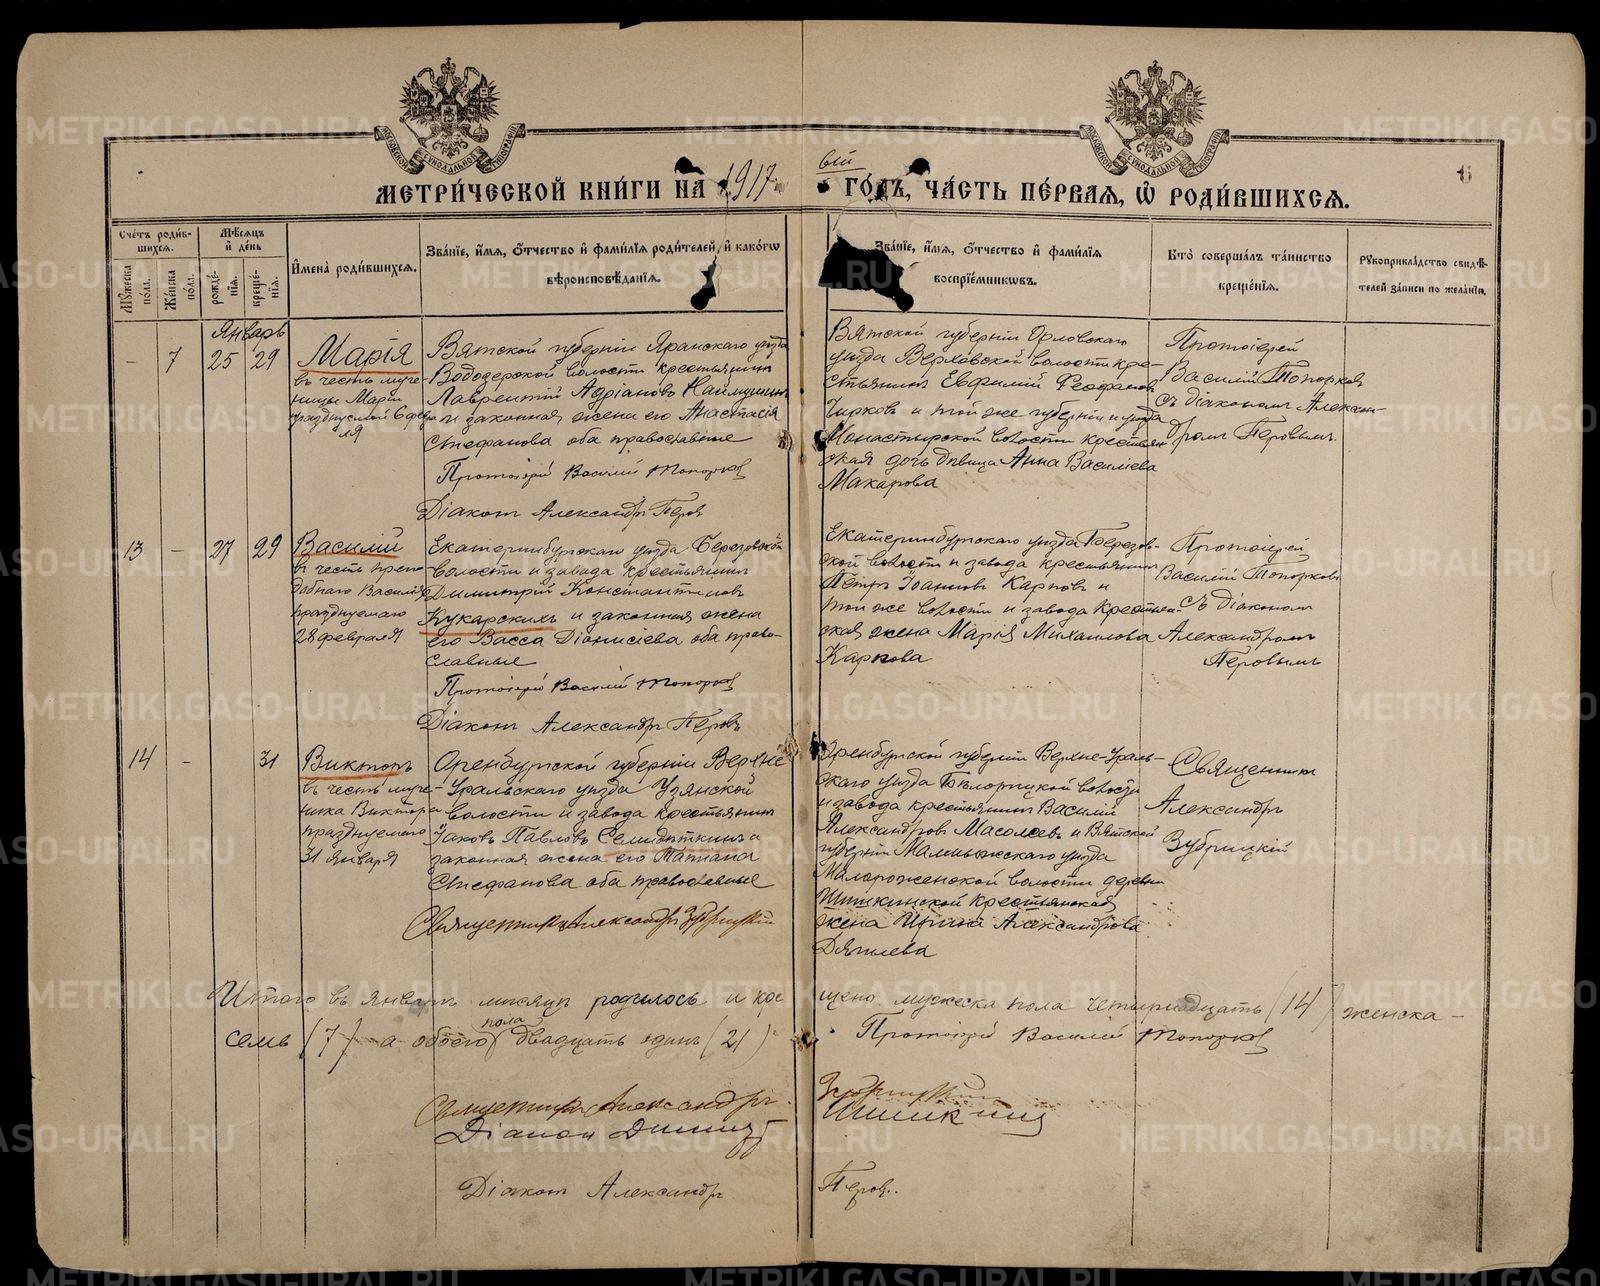 МЕТРИ́ЧЕСКОЙ КНИ́ГИ НА 1917 вый ГО́ДЪ, ЧА́СТЬ ПЕ́РВАЯ, Ѽ РОДИ́ВШИХСѦ.
6
Сче́тъ роди́вшихся.
Мꙋ́жеска по́ла.
Же́нска по́ла.
Мѣ́сяцъ и де́нь
рожде́нїя.
креще́нїя.
И҆мена̀ роди́вшихся.
Зва́нїе, и҆́мя, ѻ҆́тчество и҆ фами́лїя роди́телей, и҆ како́гѡ вѣроисповѣ́данїя.
Зва́нїе, и҆́мя, ѻ҆́тчество и҆ фами́лїя воспрїе́мникѡвъ.
Кто̀ соверша́лъ та́инство креще́нїя.
Рꙋкоприкла́дство свидѣ́телей за́писи по жела́нїю.
Январь
– 7 25 29
Марія
въ честь муче-
ницы Маріи
празднуемой 6 февра
ля
Вятской губерніи Яранскаго уѣзда
Водозерской волости крестьянин
Лаврентій Адріановъ Наймушин
и законная жена его Анастасія
Стефанова оба православные
Протоіерей Василій Топорков
Діакон Александр Перов
Вятской губерніи Орловскаго
уѣзда Верховской волости кре-
стьянинъ Евфимій Феофанов
Чирковъ и той же губерніи и уѣзда
Монастырской волости крестьян
ская дочь дѣвица Анна Василіева
Макарова
Протоіерей
Василій Топорков
съ діакономъ Алексан-
дромъ Перовымъ.
13 – 27 29
Василій
въ честь препо
добнаго Василія
празднуемаго
28 февраля
Екатеринбургскаго уѣзда Березовской
волости и завода крестьянинъ
Димитрій Константиновъ
Кукарскихъ и законная жена
его Васса Діонисіева оба право-
славные
Протоіерей Василій Топорков
Діакон Александръ Перовъ
Екатеринбургскаго уѣзда Березов-
ской волости и завода крестьянинъ
Петръ Іоанновъ Карповъ и
той же волости и завода крестьян-
ская жена Марія Михаилова
Карпова
Протоіерей
Василій Топорковъ
съ діакономъ
Александромъ
Перовымъ
14 – 31
Викторъ
въ честь муче-
ника Виктора
празднуемаго
31 января
Оренбургской губерніи Верхне
Уральскаго уѣзда Узянской
волости и завода крестьянинъ
Іаковъ Павловъ
законная жена его Татіана
Стефанова оба православные
Священникъ Александръ Зубрицкій
Оренбургской губерніи Верхне-Ураль-
скаго уѣзда Бѣлорѣцкой волости
и завода крестьянинъ Василій
Александровъ и Вятской
губерніи Малмыжскаго уѣзда
волости деревни
Шишкинской крестьянская
жена Ирина Александрова
Дягилева
Священникъ
Александръ
Зубрицкій
Итого въ январѣ мѣсяцѣ родилось и кре
щено мужеска пола четырнадцать (14) женска –
семь (7) а обоего пола двадцать одинъ (21)
Протоіерей Василій Топорков
Священникъ Александръ
Зубрицкій
Діакон
Шишкин
Діакон Александръ
Перов.
METRIKI.GASO-URAL.RU